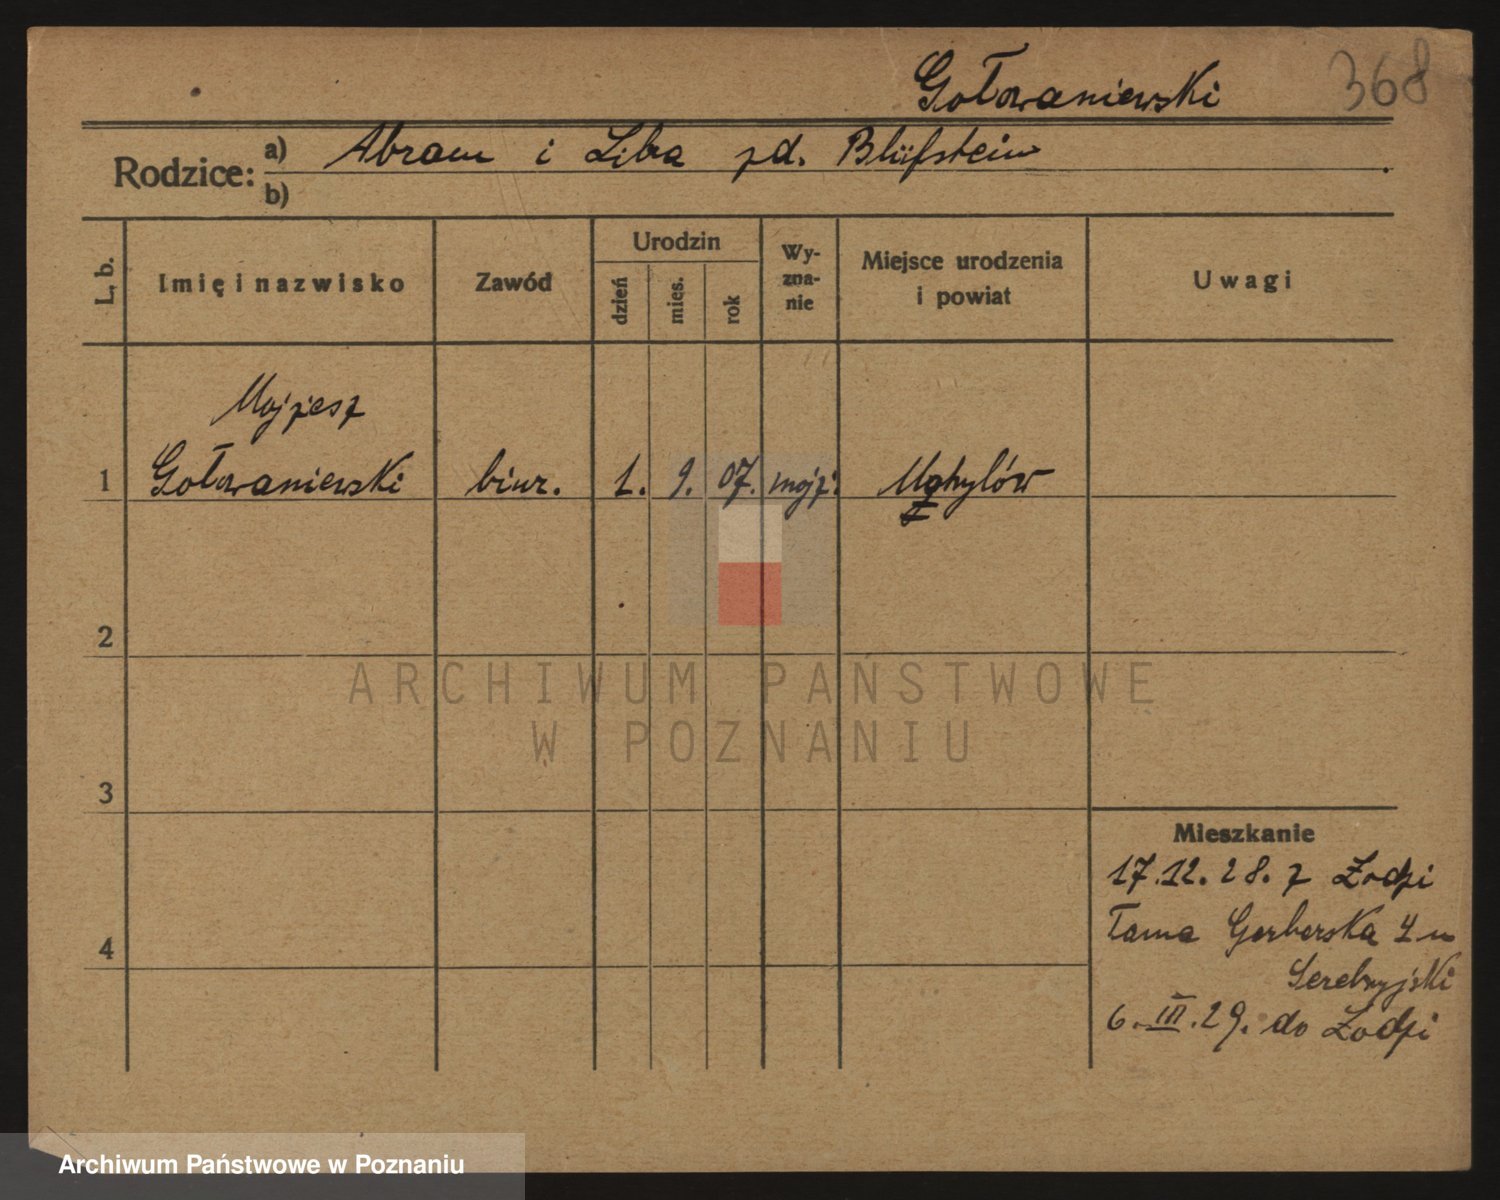 Gołowaniewski 368
Rodzice: a) Abram i Liba zd. Blüfstein
b)
L. b.
Imię i nazwisko
Zawód
Urodzin
dzień
mies.
rok
Wy-
zna-
nie
Miejsce urodzenia
i powiat
Uwagi
Mojżesz
1 Gołowaniewski biur. 1. 9. 07. mojż. Mohylów
2
3
4
Mieszkanie
17.12.28. z Łodzi
Tama Gerberska 4 u
Serebryjski
6.III.29. do Łodzi
ARCHIWUM PAŃSTWOWE
W POZNANIU
Archiwum Państwowe w Poznaniu